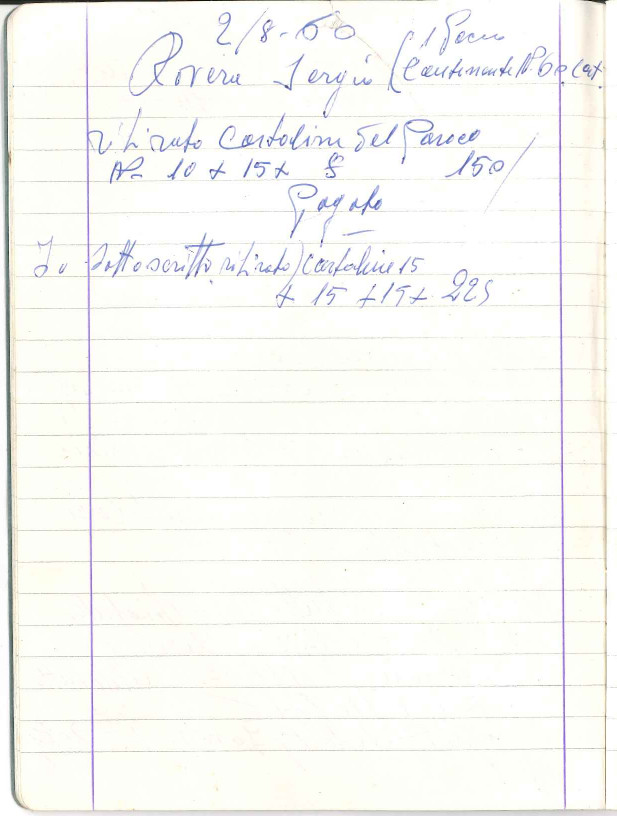 2/8-60
1 Pacco
Rovera Sergio (Contenente N. 60 Cat.
ritirato Cartoline del Paroco
N- 10 x 15 x £ 150/
Pagato
Io Sottoscritto ritirato) cartoline 15
x 15 +15x 225